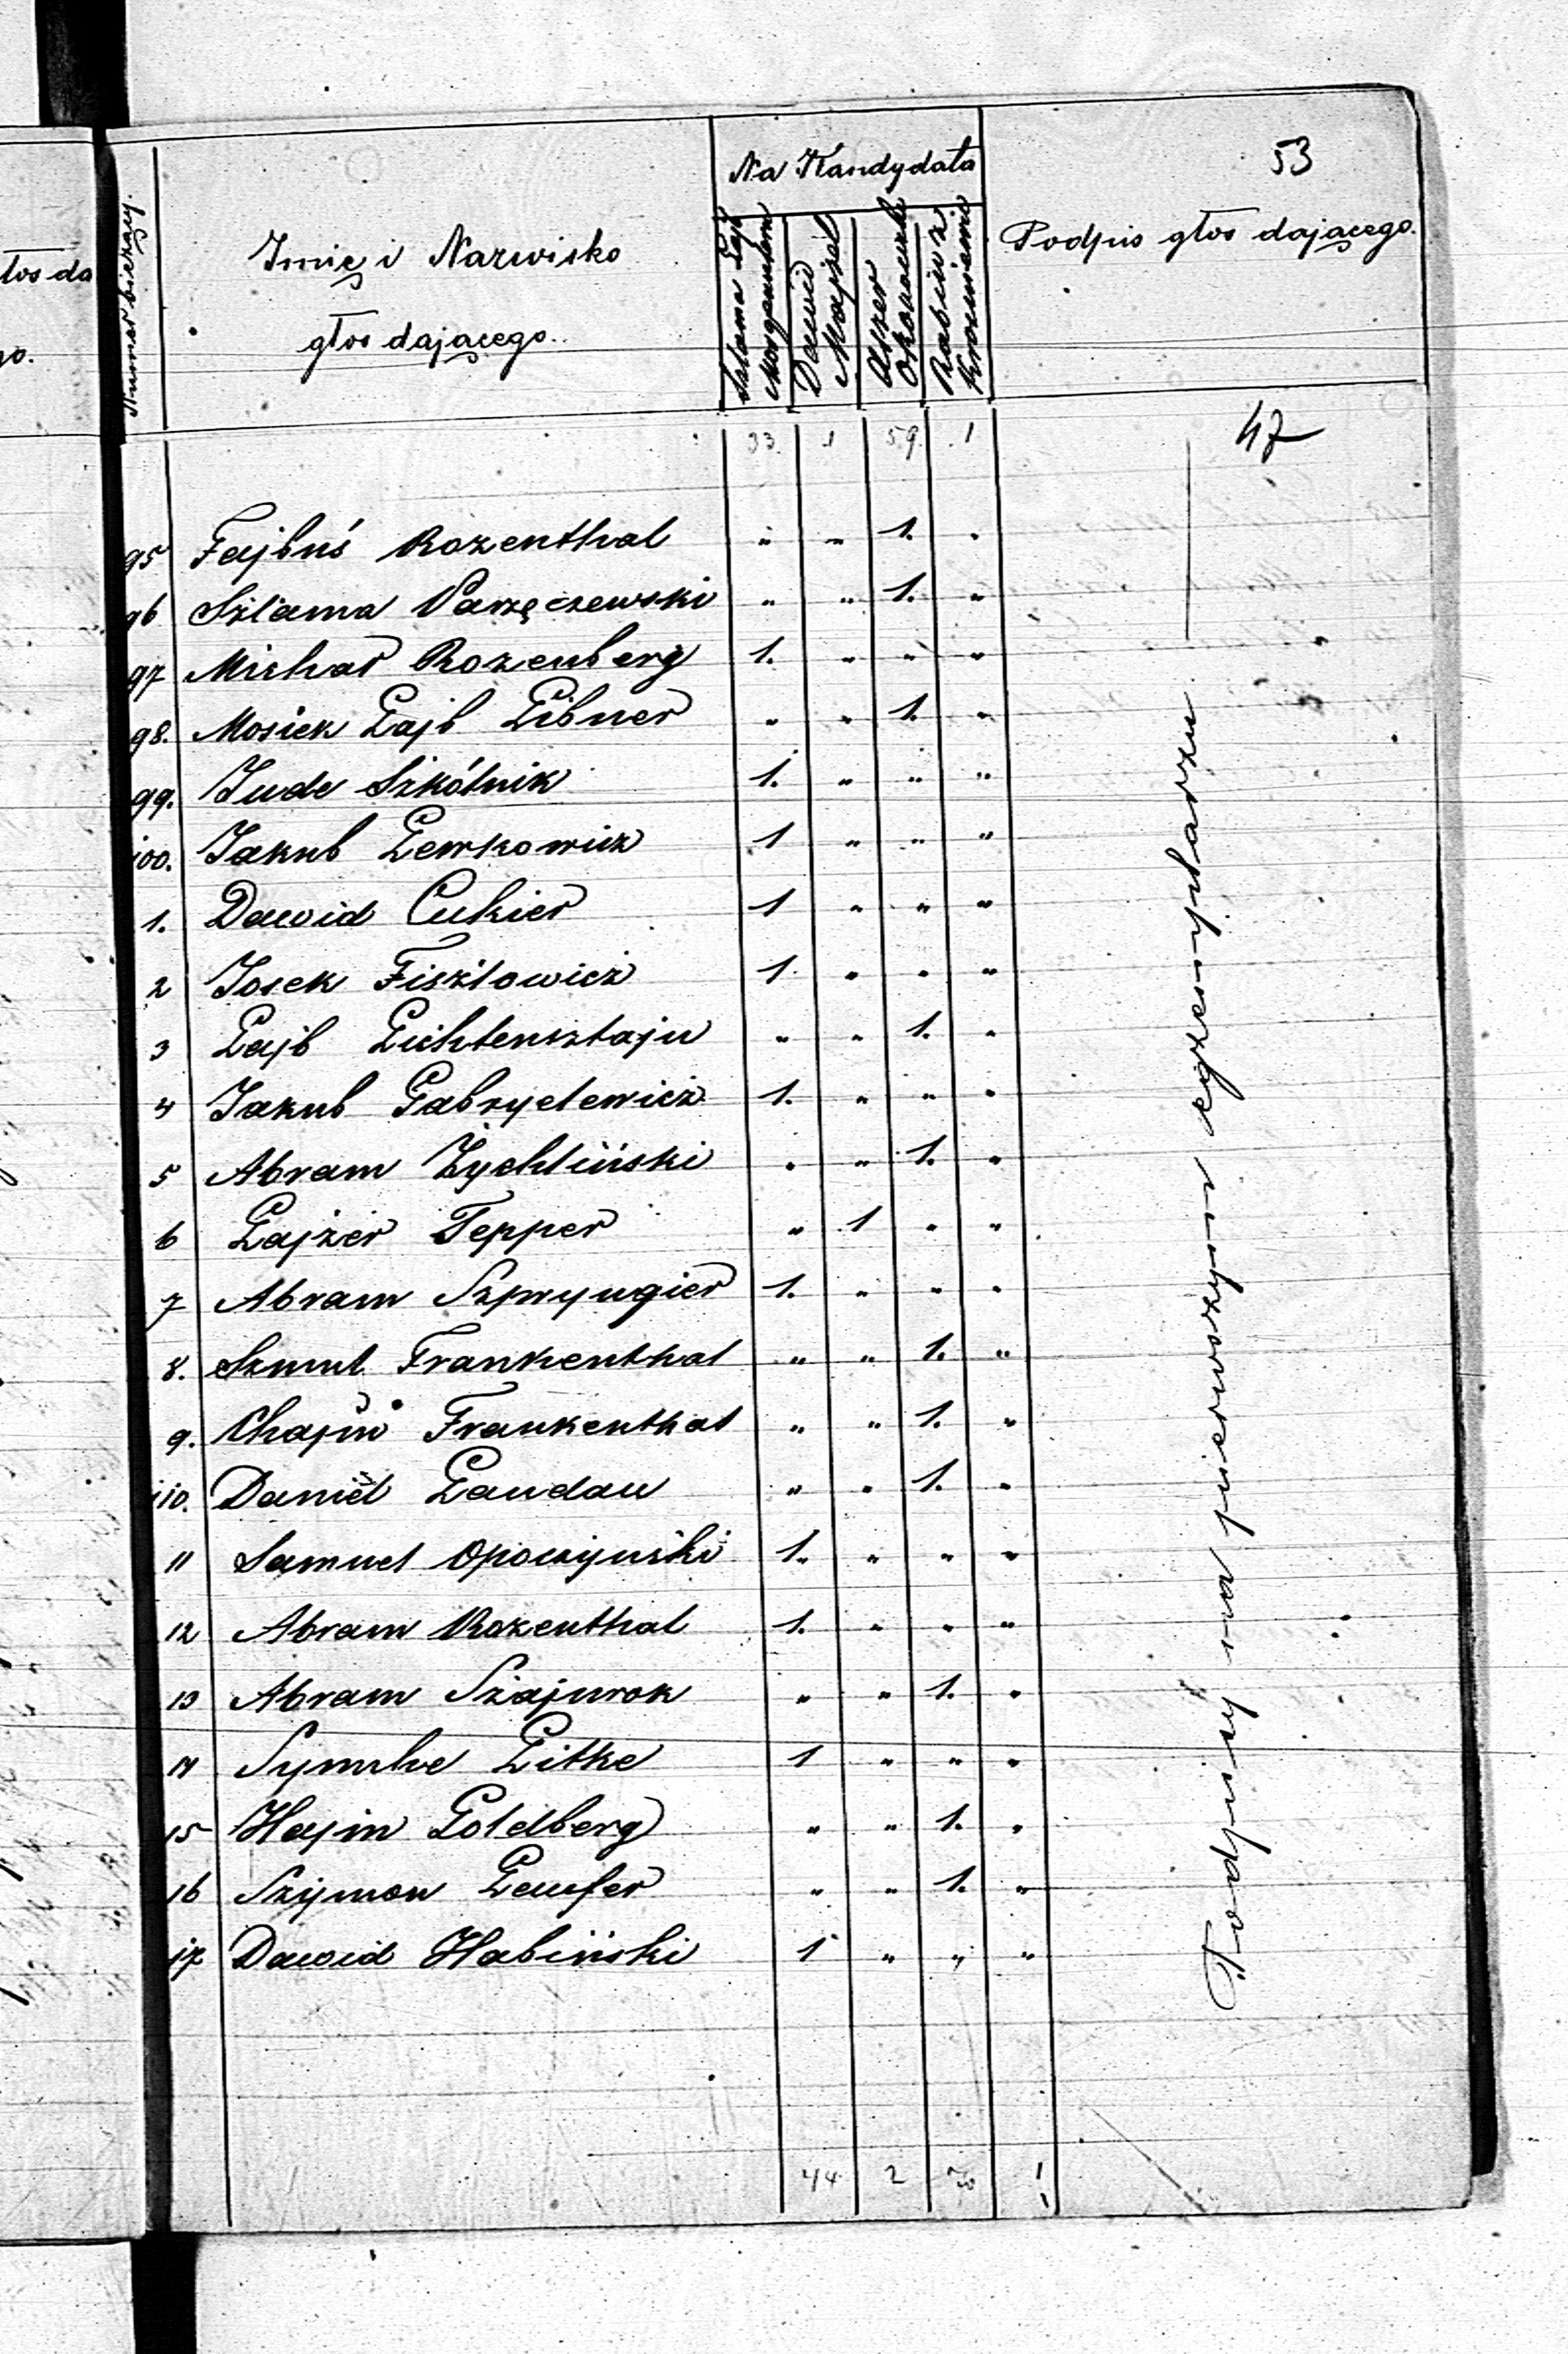 53
tos da
go.
Numer bieżący.
Imię i Nazwisko
głos dającego.
Na Kandydata
Szlama Lajb
Morgensztern
Dawid
Majzel
Aszer
Rabin z
Podpis głos dającego.
47
33. 1 59. 1
95 Fajbuś Rozenthal " " 1. "
96 Szlama Parzęczewski " " 1. "
97 Michał Rozenberg 1. " " "
98. Mosiek Lajb Libner " " 1. "
99. Jude Szkólnik 1. " " "
100. Jakub Lewkowicz 1 " " "
1. Dawid Cukier 1 " " "
2 Josek Fiszlowicz 1. " " "
3 Lajb Lichtensztajn " " 1. "
4 Jakub Gabryelewicz 1. " " "
5 Abram Żychliński " " 1. "
6 Lajzer Tepper " 1 " "
7 Abram Szpryngier 1. " " "
8. Szmul Frankenthal " " 1. "
9. Chajm Frankenthal " " 1. "
110. Daniel Landau " " 1. "
11 Samuel Opoczyński 1. " " "
12 Abram Rozenthal 1. " " "
13 Abram Szajurok " " 1. "
14 Symche Litke 1 " " "
15 Hajm Goldberg " " 1. "
16 Szymon Leufer " " 1. "
17 Dawid Habiński 1 " " "
44 2 70 1
Podpisy na pierwszym egzemplarzu